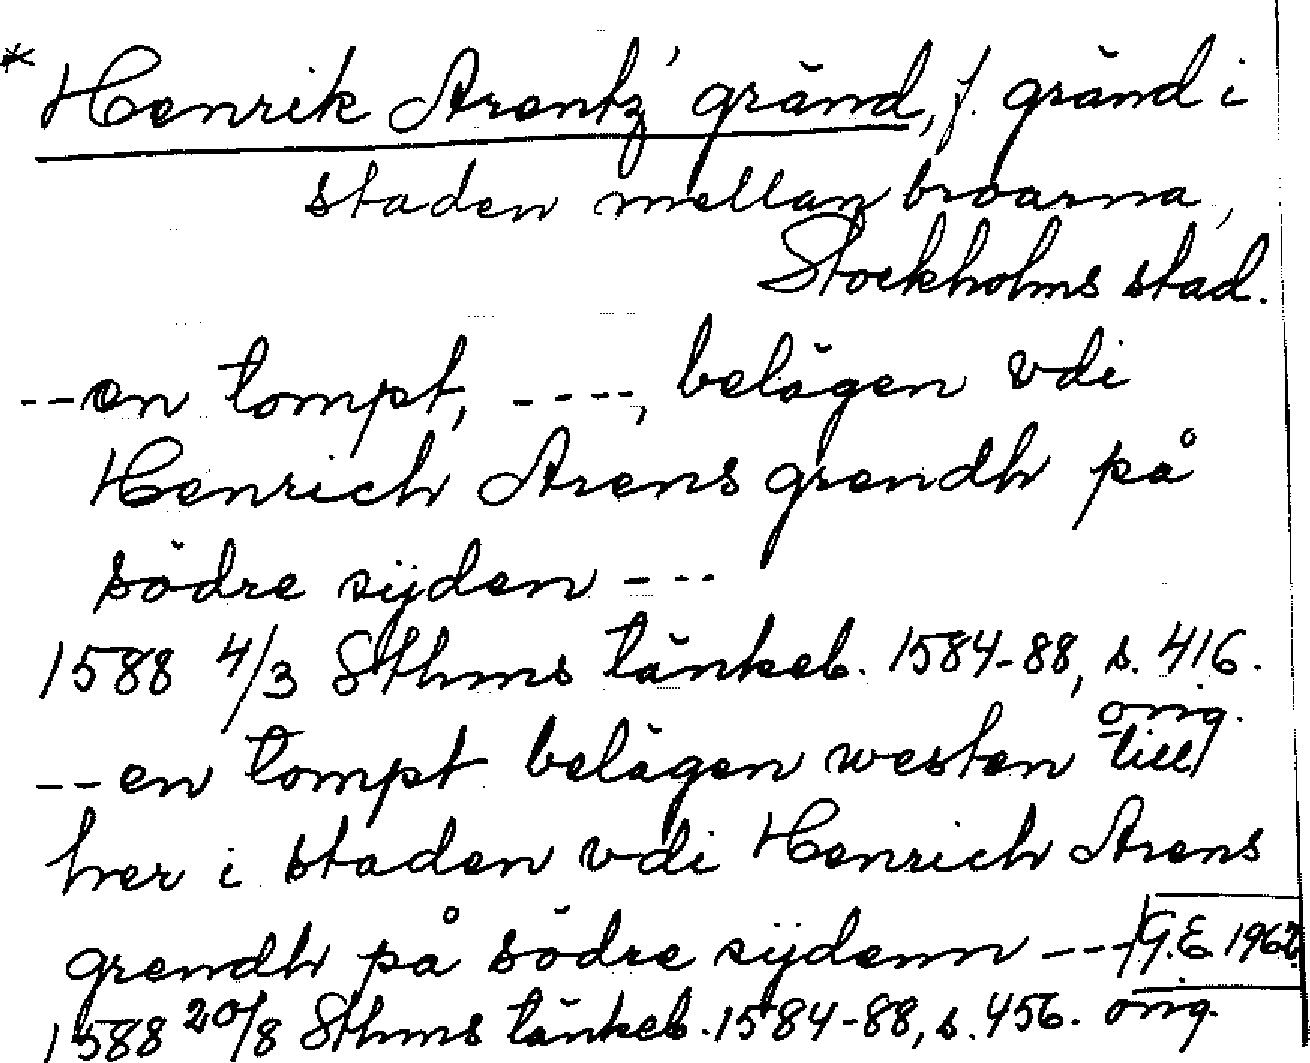 * Henrik Arentz' gränd, f. gränd i
staden mellan broarna,
Stockholms stad.
--en tompt, ----, belägen vdi
Henrich Arens grendh på
södre sijden ---
1588 4/3 Sthms tänkeb. 1584-88, s. 416.
orig.
--en tompt belägen westen till
her i staden vdi Henrich Arens
grendh på södre sijdenn ---
G.E. 1962.
1588 20/8 Sthms tänkeb. 1584-88, s. 456. orig.